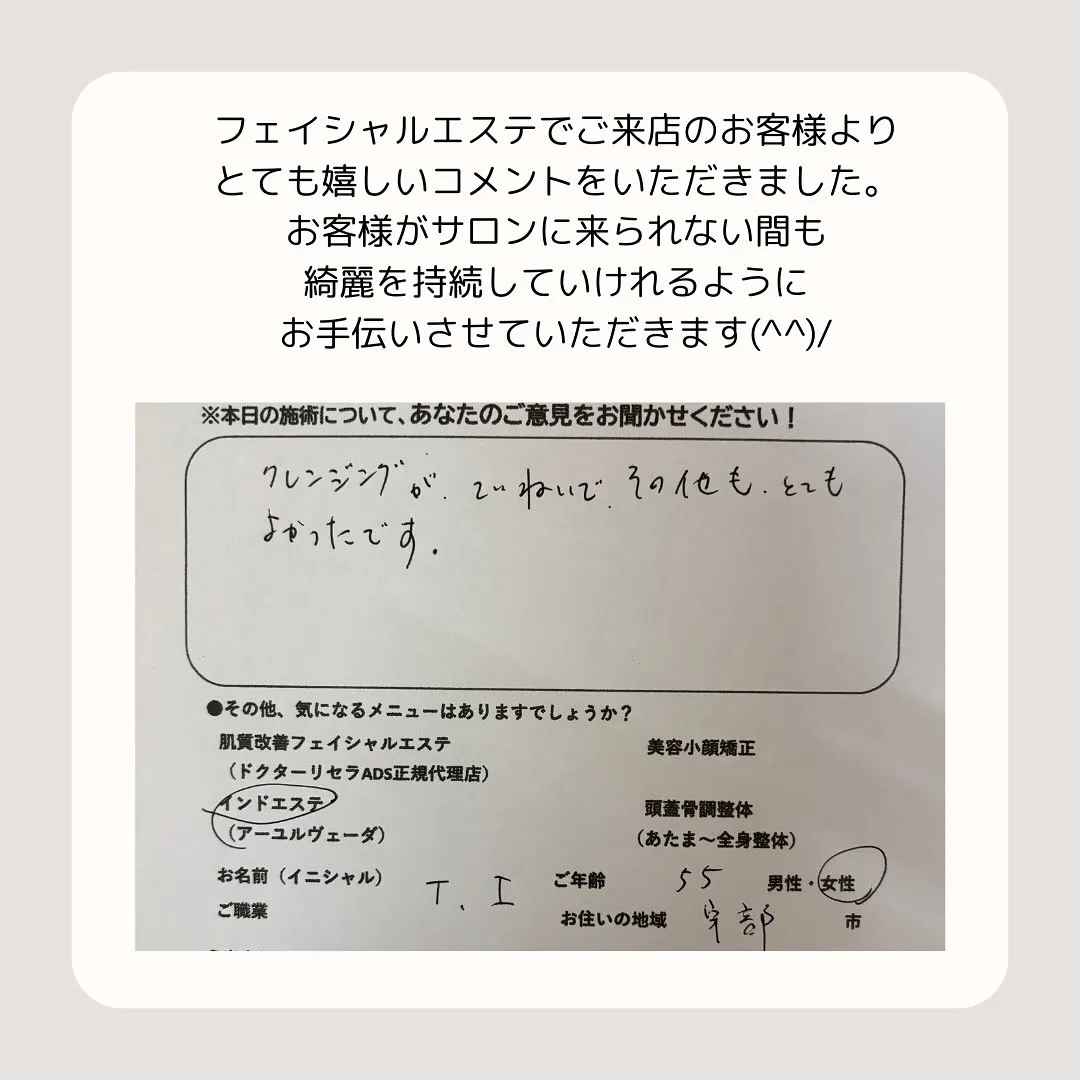 フェイシャルエステでご来店のお客様より
とても嬉しいコメントをいただきました。
お客様がサロンに来られない間も
綺麗を持続していけれるように
お手伝いさせていただきます(^^)/
※本日の施術について、あなたのご意見をお聞かせください！
クレンジングが、ていねいで、その他も、とても
よかったです。
●その他、気になるメニューはありますでしょうか？
肌質改善フェイシャルエステ 美容小顔矯正
（ドクターリセラADS正規代理店）
インドエステ 頭蓋骨調整体
（アーユルヴェーダ） （あたま〜全身整体）
お名前（イニシャル） T. I ご年齢 55 男性・女性
ご職業 お住いの地域 宇部 市